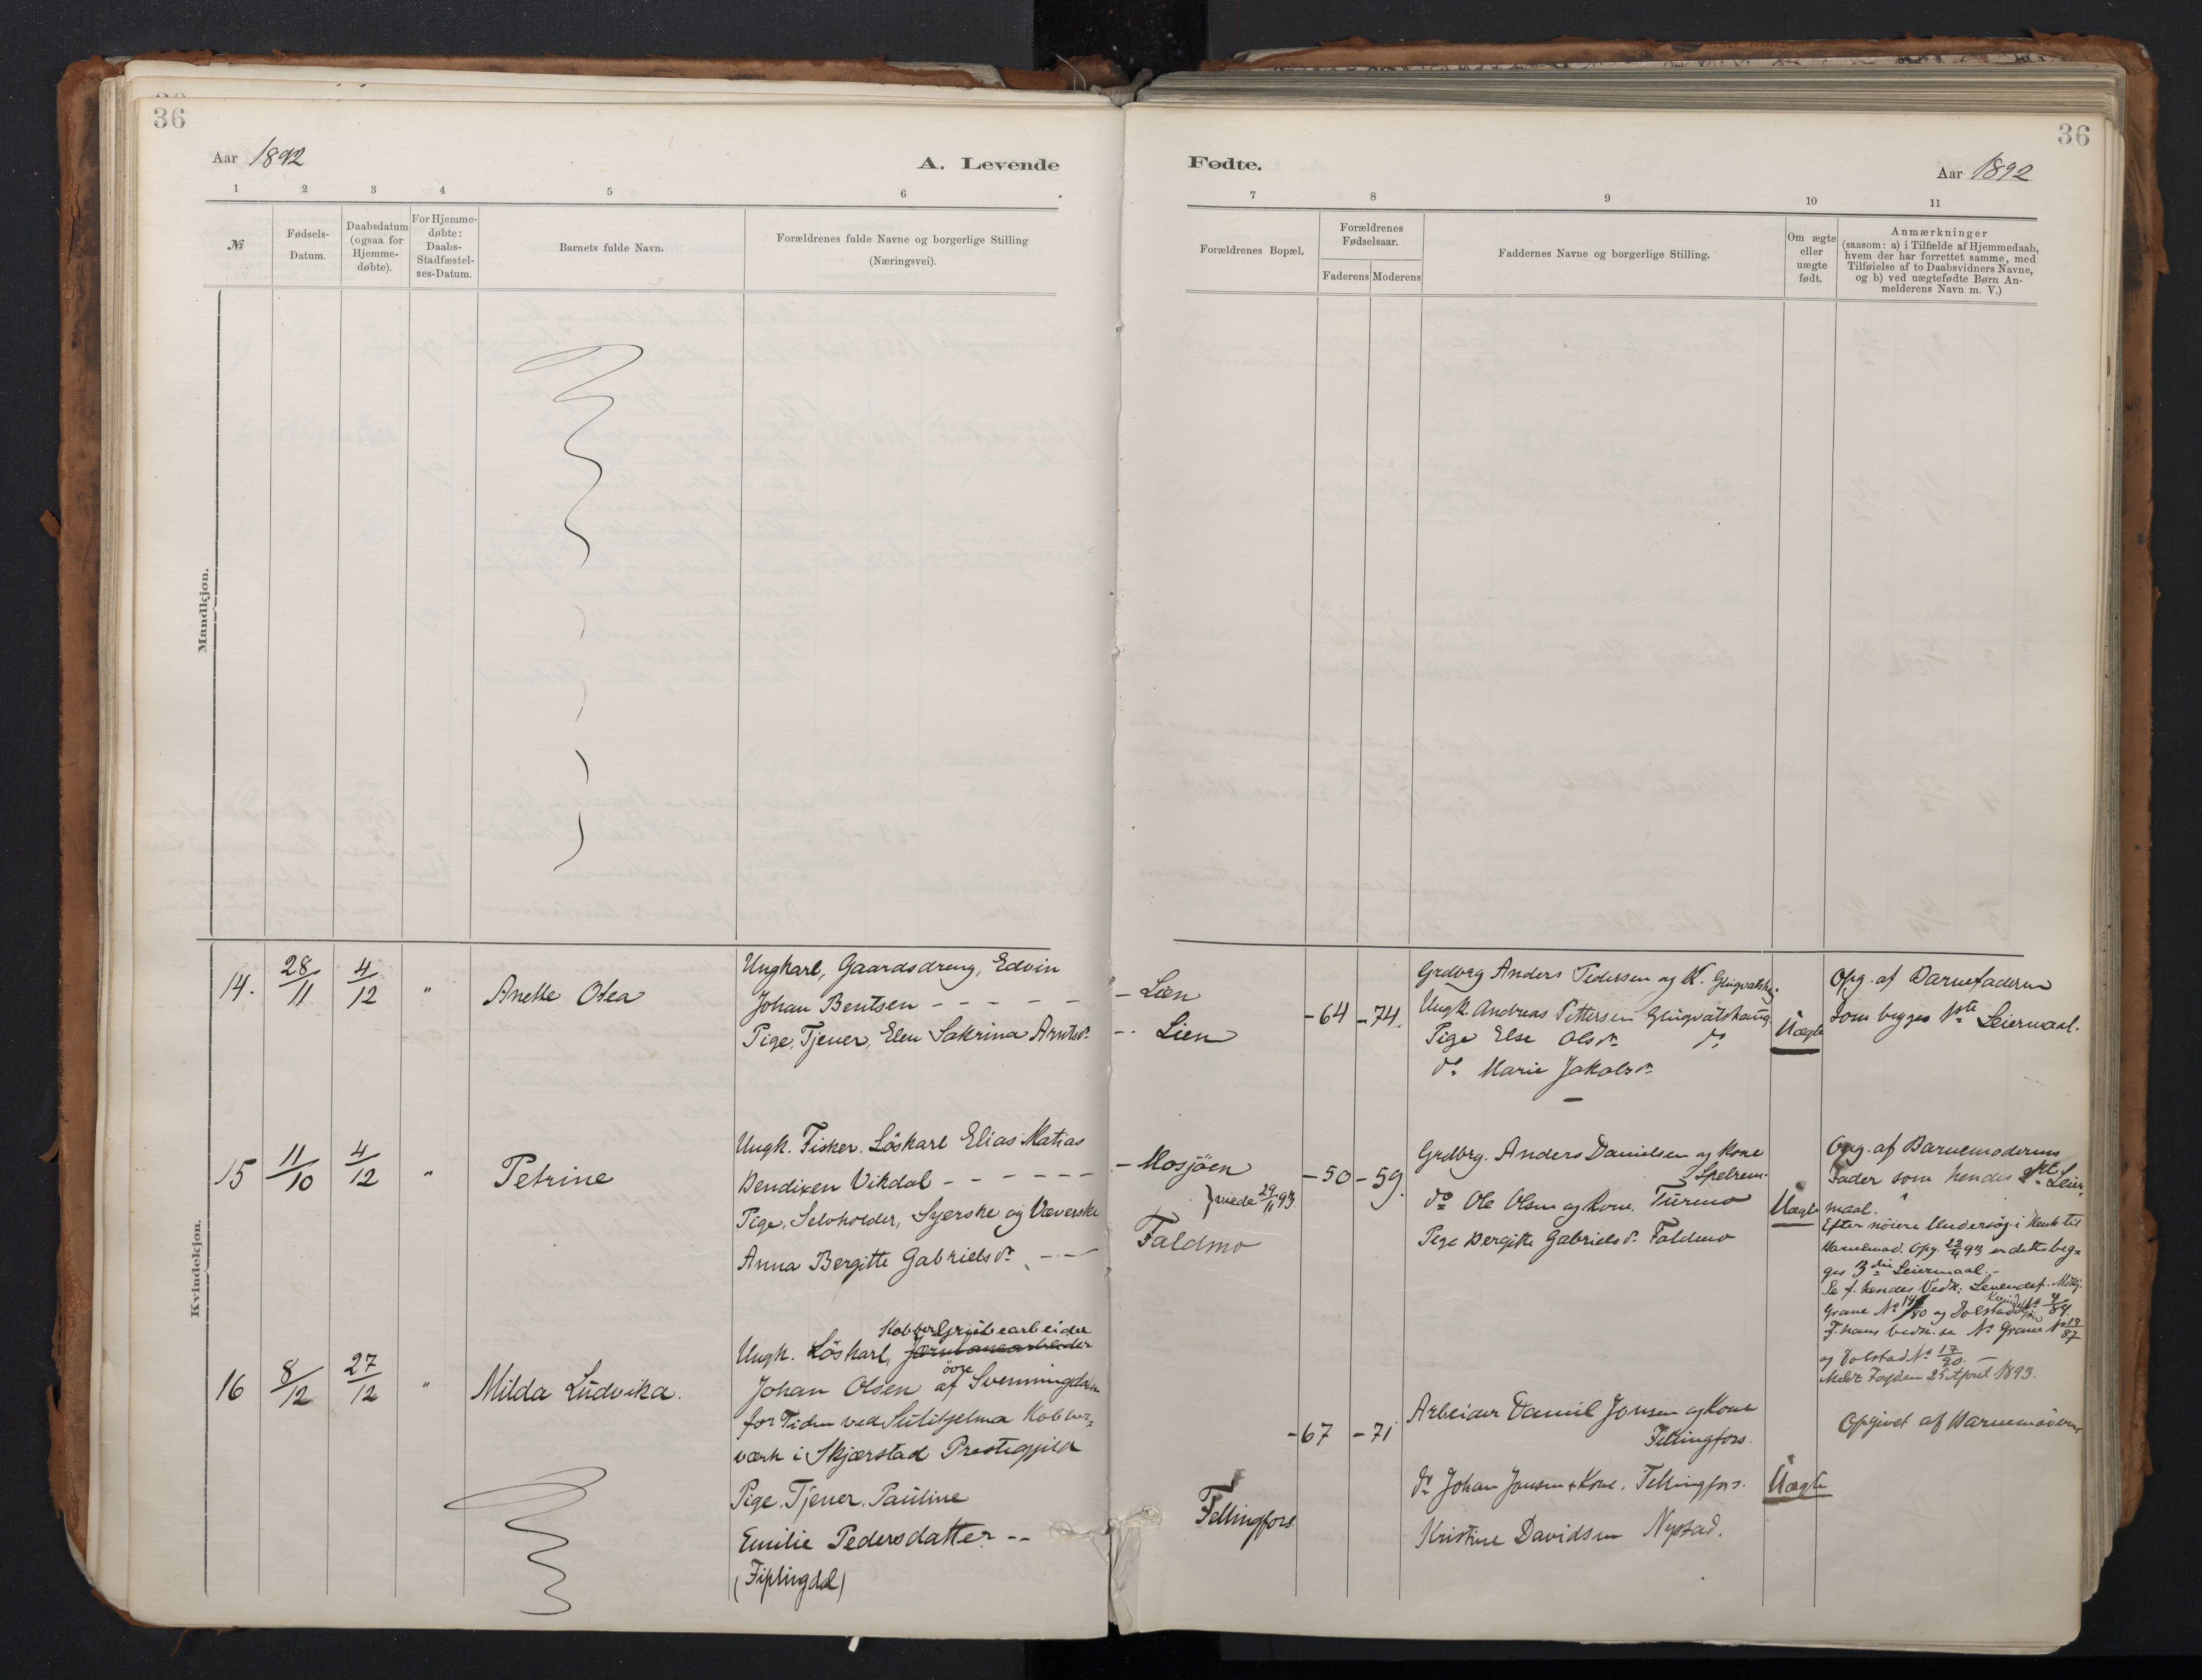 36
Aar 1892
A. Levende
1 2 3 4 5 6
№
Fødsels-
Datum.
Daabsdatum
(ogsaa for
Hjemme-
døbte).
For Hjemme-
døbte:
Daabs-
Stadfæstel-
ses-Datum.
Barnets fulde Navn.
Forældrenes fulde Navne og borgerlige Stilling
(Næringsvei).
Mandkjøn.
Kvindekjøn.
14. 28/11 4/12 " Anette Otea
Ungkarl, Gaardsdreng, Edvin
Johan Bentsen - - - - -
Pige, Tjener, Elen Sakrina Arntsd.
15 11/10 4/12 " Petrine
Ungk. Fisker. Löskarl Elias Matias
Bendixen Vikdal - - - - - -
Pige, Selvholder, Syerske og Væverske
Anna Bergitte Gabrielsd. - - -
16 8/12 27/12 " Milda Ludvika.
Kobbergrubearbeider
Ungk. Löskarl,
övre
Johan Olsen af Svenningdalen
for Tiden ved Sulitjelma Kobber=
værk i Skjærstad Prestegjeld
Pige. Tjener. Pauline
Emilie Pedersdatter - -
(Fiplingdal)
36
Fødte.
Aar 1892
7 8 9 10 11
Forældrenes Bopæl.
Forældrenes
Fødselsaar.
Faderens Moderens
Faddernes Navne og borgerlige Stilling.
Om ægte
eller
uægte
født.
Anmærkninger
(saasom: a) i Tilfælde af Hjemmedaab,
hvem der har forrettet samme, med
Tilføielse af to Daabsvidners Navne,
og b) ved uægtefødte Børn An-
melderens Navn m. V.)
- Lien
- - Lien
-64 -74.
Grdbrg Anders Pedersen og K.
Ungk. Andreas Pettersen
Pige Else Olsdr. do
do Marie Jakobsdr.
Uægte
Opg. af Barnefaderen
som begges 1ste Leiermaal.
- Mosjöen
} viede 29/11 93.
Faldmo
-50 -59.
Grdbrg. Anders Danielsen og Kone
Spelrem.
do Ole Olsen og Kone. Turmo
Pige Bergitte Gabrielsd. Faldmo
Uægte
Opg. af Barnemoderens
Fader som hendes 2det Leier
maal.
Efter nöiere Undersög. i Henh. til
Barnemod. Opg. 23/4 93 er dette beg=
ges 3die Leiermaal. -
Se f. hendes Vedk. Levendef.
Grane No 14/80 og Dolstad
F. hans Vedk. se Grane No 19/87
og Dolstad No 17/90. -
Meldt Fogden 25 April 1893.
Fellingfors.
-67 -71
Arbeider Daniel Jonsen og Kone
Fellingfors.
do Johan Jonsen + Kone. Fellingfors.
Kristine Davidsen Nystad.
Uægte
Opgivet af Barnemoderen